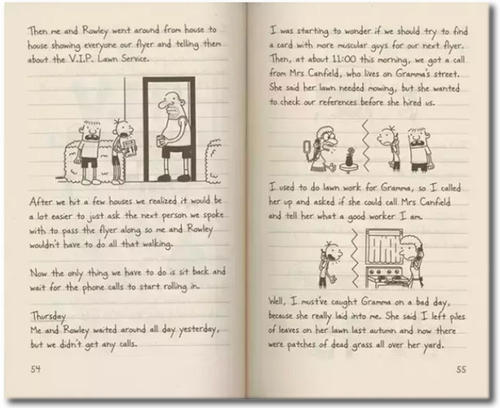 Then me and Rowley went around from house to
house showing everyone our flyer and telling them
about the V.I.P. Lawn Service.
After we hit a few houses we realized it would be
a lot easier to just ask the next person we spoke
with to pass the flyer along so me and Rowley
wouldn't have to do all that walking.
Now the only thing we have to do is sit back and
wait for the phone calls to start rolling in.
Thursday
Me and Rowley waited around all day yesterday,
but we didn't get any calls.
54
I was starting to wonder if we should try to find
a card with more muscular guys for our next flyer.
Then, at about 11:00 this morning, we got a call
from Mrs Canfield, who lives on Gramma's street.
She said her lawn needed mowing, but she wanted
to check our references before she hired us.
I used to do lawn work for Gramma, so I called
her up and asked if she could call Mrs Canfield
and tell her what a good worker I am.
Well, I must've caught Gramma on a bad day,
because she really laid into me. She said I left piles
of leaves on her lawn last autumn and now there
were patches of dead grass all over her yard.
55